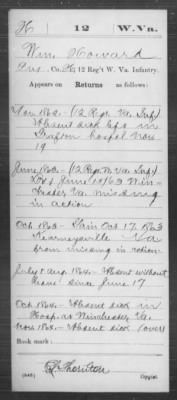 H 12 W.Va.
Wm. Howard
Pvt., Co. H, 12 Reg't W. Va. Infantry.
Appears on Returns as follows:
Nov 1862 - (12 Regt. Va. Inf)
Absent sick left in
Grafton hospl Nov
19
June 1863 - (12 Regt. W. Va. Inf)
Loss June 1863 Win-
chester Va. missing
in action
Oct 1863 - Gain Oct 17 1863
Kearneysville Va
from missing in action
July & Aug. 1864 - Absent without
leave since June 17
Oct 1864 - Absent sick in
Hosp. at Winchester Va.
Nov 1864 - Absent sick (over)
Book mark:
Thornton
(546) Copyist.